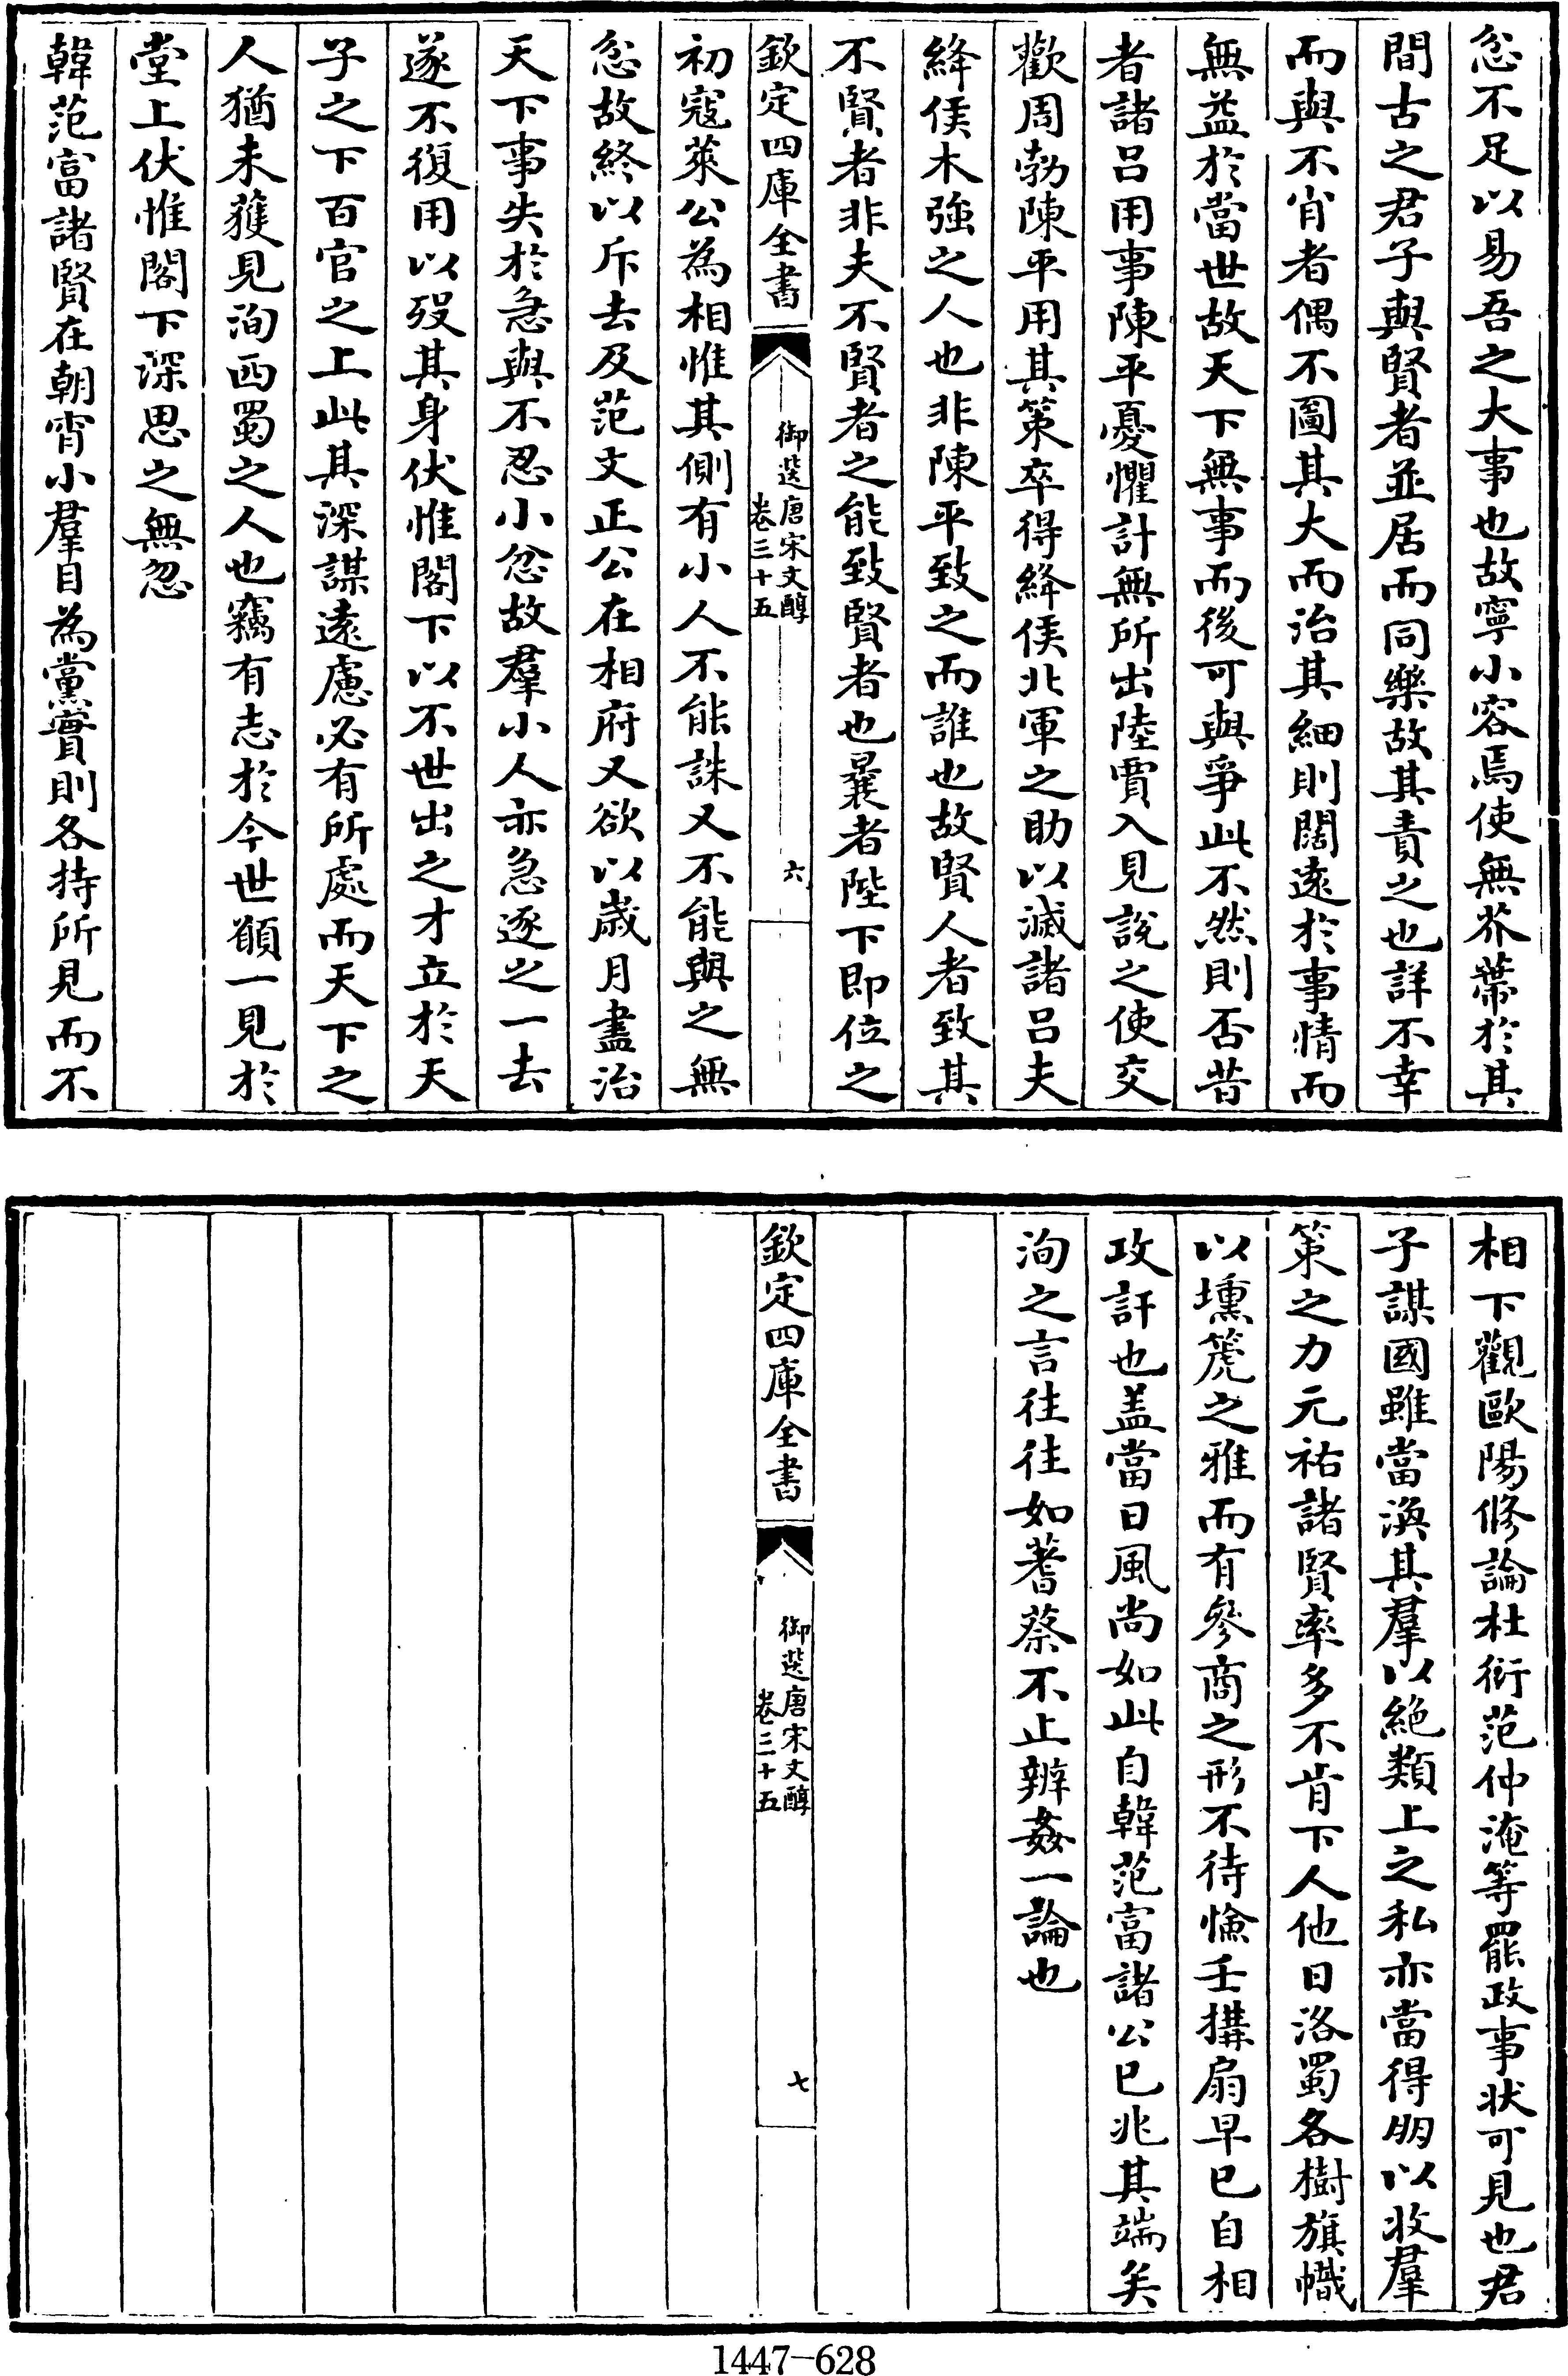 忿不足以易吾之大事也故寧小容焉使無芥蔕於其
間古之君子與賢者並居而同樂故其責之也詳不幸
而與不肖者偶不圖其大而治其細則闊遠於事情而
無益於當世故天下無事而後可與爭此不然則否昔
者諸呂用事陳平憂懼計無所出陸賈入見說之使交
歡周勃陳平用其策卒得絳侯北軍之助以滅諸呂夫
絳侯木強之人也非陳平致之而誰也故賢人者致其
不賢者非夫不賢者之能致賢者也曩者陛下即位之
欽定四庫全書
御選唐宋文醇
卷三十五
六
初寇萊公為相惟其側有小人不能誅又不能與之無
忿故終以斥去及范文正公在相府又欲以歲月盡治
天下事失於急與不忍小忿故羣小人亦急逐之一去
遂不復用以歿其身伏惟閣下以不世出之才立於天
子之下百官之上此其深謀遠慮必有所處而天下之
人猶未獲見洵西蜀之人也竊有志於今世願一見於
堂上伏惟閣下深思之無忽
韓范富諸賢在朝宵小羣目為黨實則各持所見而不
相下觀歐陽修論杜衍范仲淹等罷政事狀可見也君
子謀國雖當渙其羣以絶類上之私亦當得朋以收羣
策之力元祐諸賢率多不肯下人他日洛蜀各樹旗幟
以壎篪之雅而有參商之形不待憸壬搆扇早已自相
攻訐也盖當日風尚如此自韓范富諸公已兆其端矣
洵之言往往如蓍蔡不止辨姦一論也
欽定四庫全書
御選唐宋文醇
卷三十五
七
1447-628